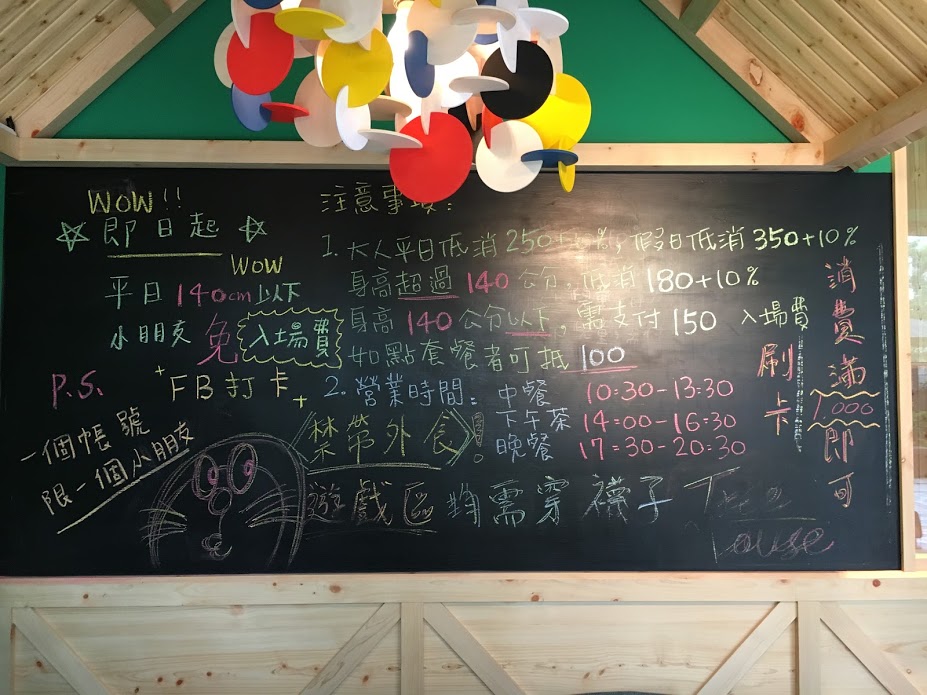 WOW!!
☆ 即日起 ☆
WOW
平日140cm以下
小朋友免入場費
+FB打卡+
P.S.
一個帳號
限一個小朋友
注意事項:
1.大人平日低消250+10%,假日低消350+10%
身高超過140公分,低消180+10%
身高140公分以下,需支付150入場費
如點套餐者可抵100
2.營業時間:中餐 10:30-13:30
下午茶 14:00-16:30
晚餐 17:30-20:30
《禁帶外食》!
遊戲區 均需穿襪子
Tree
House
消費滿1.000即可
刷卡